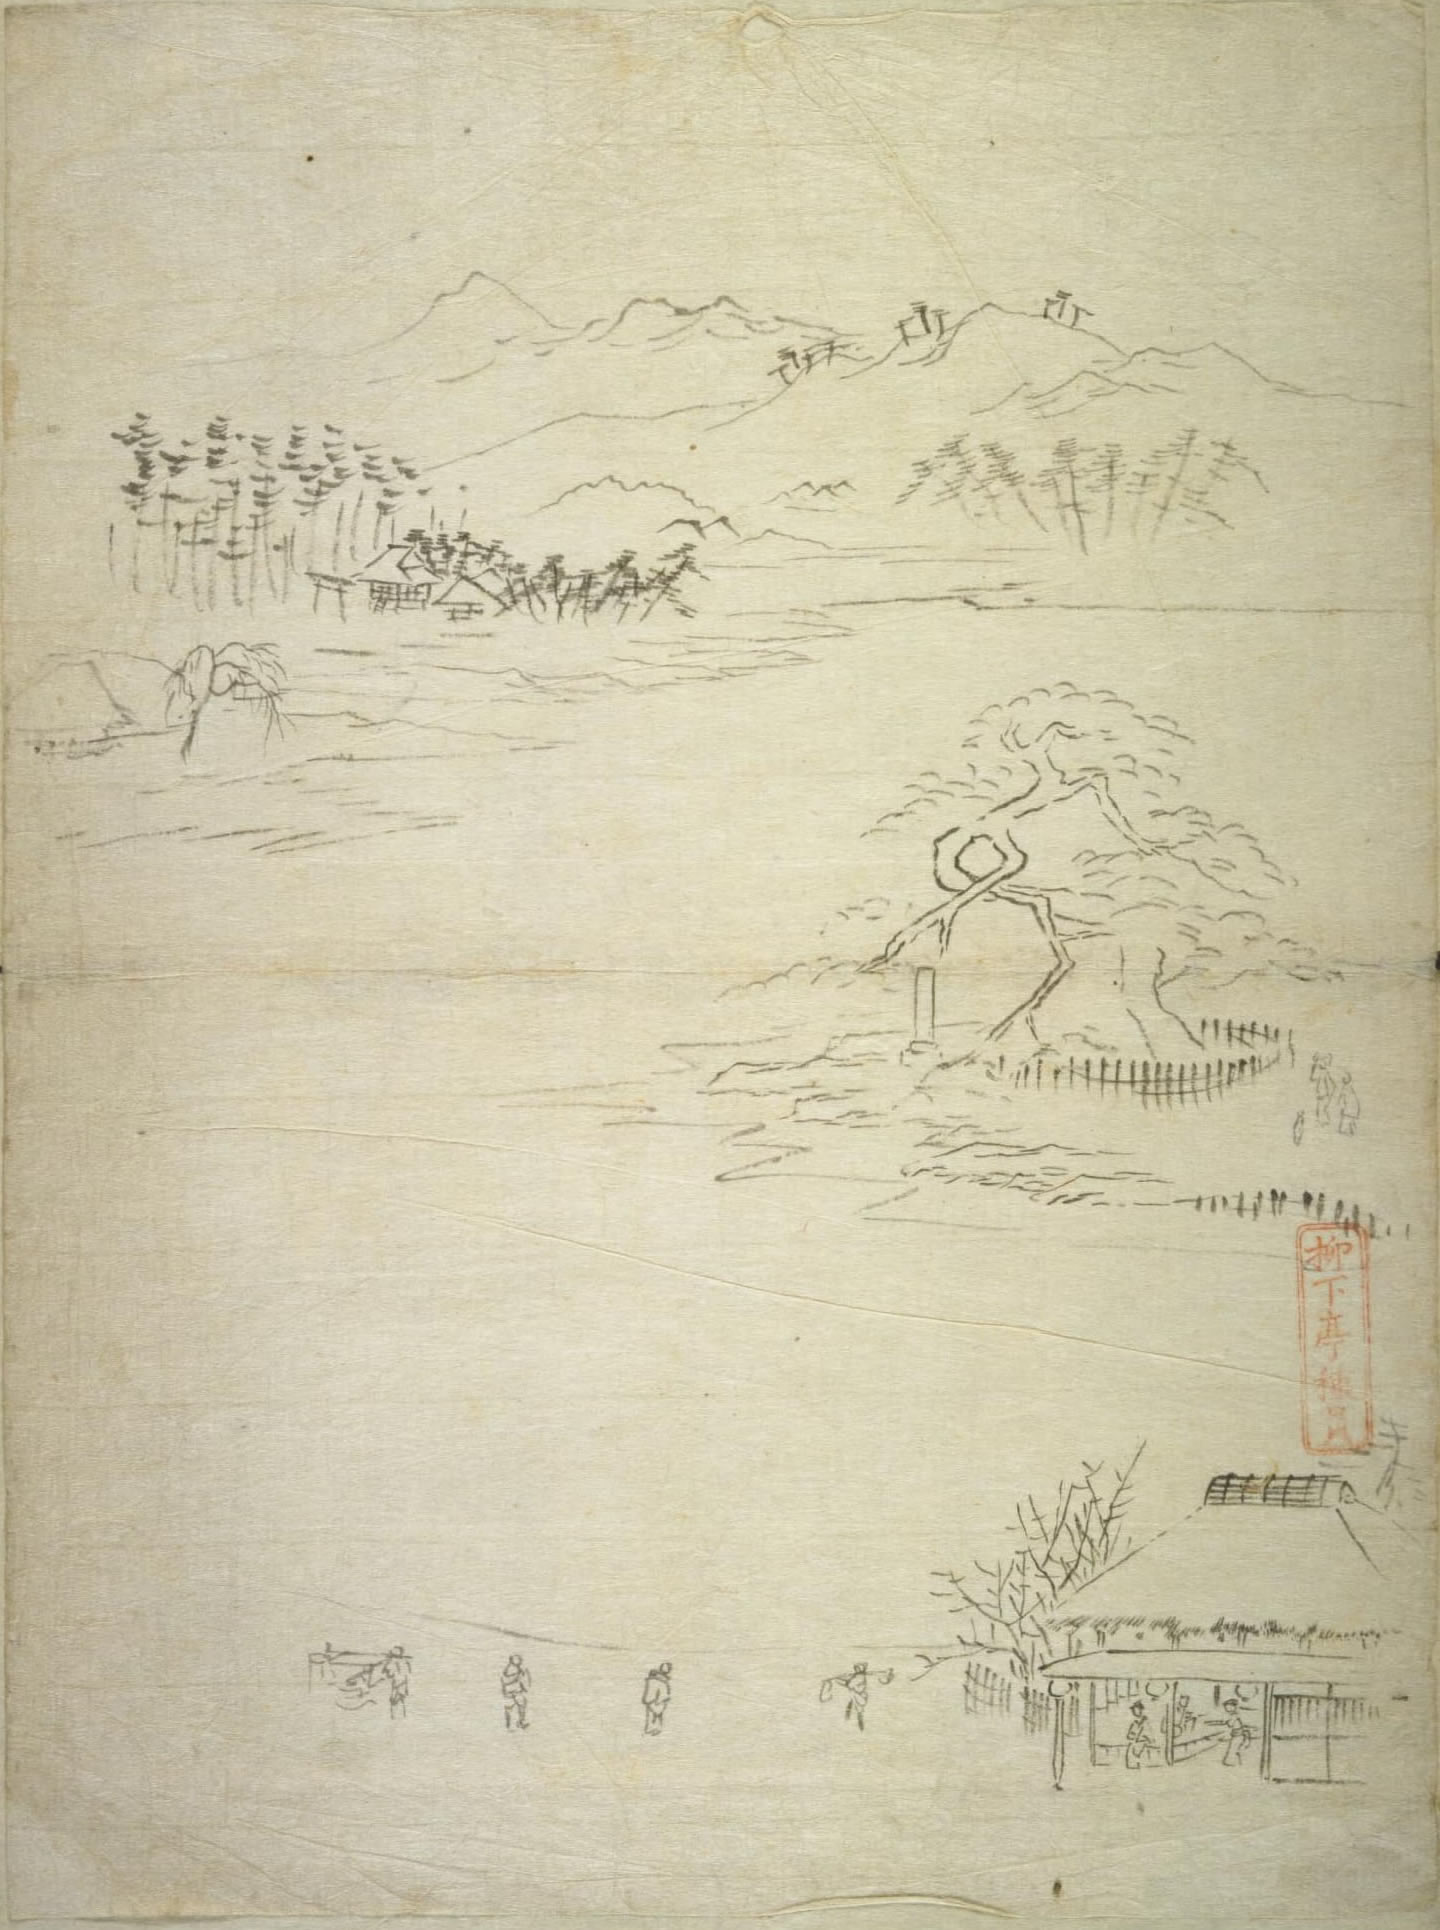 柳下亭種員